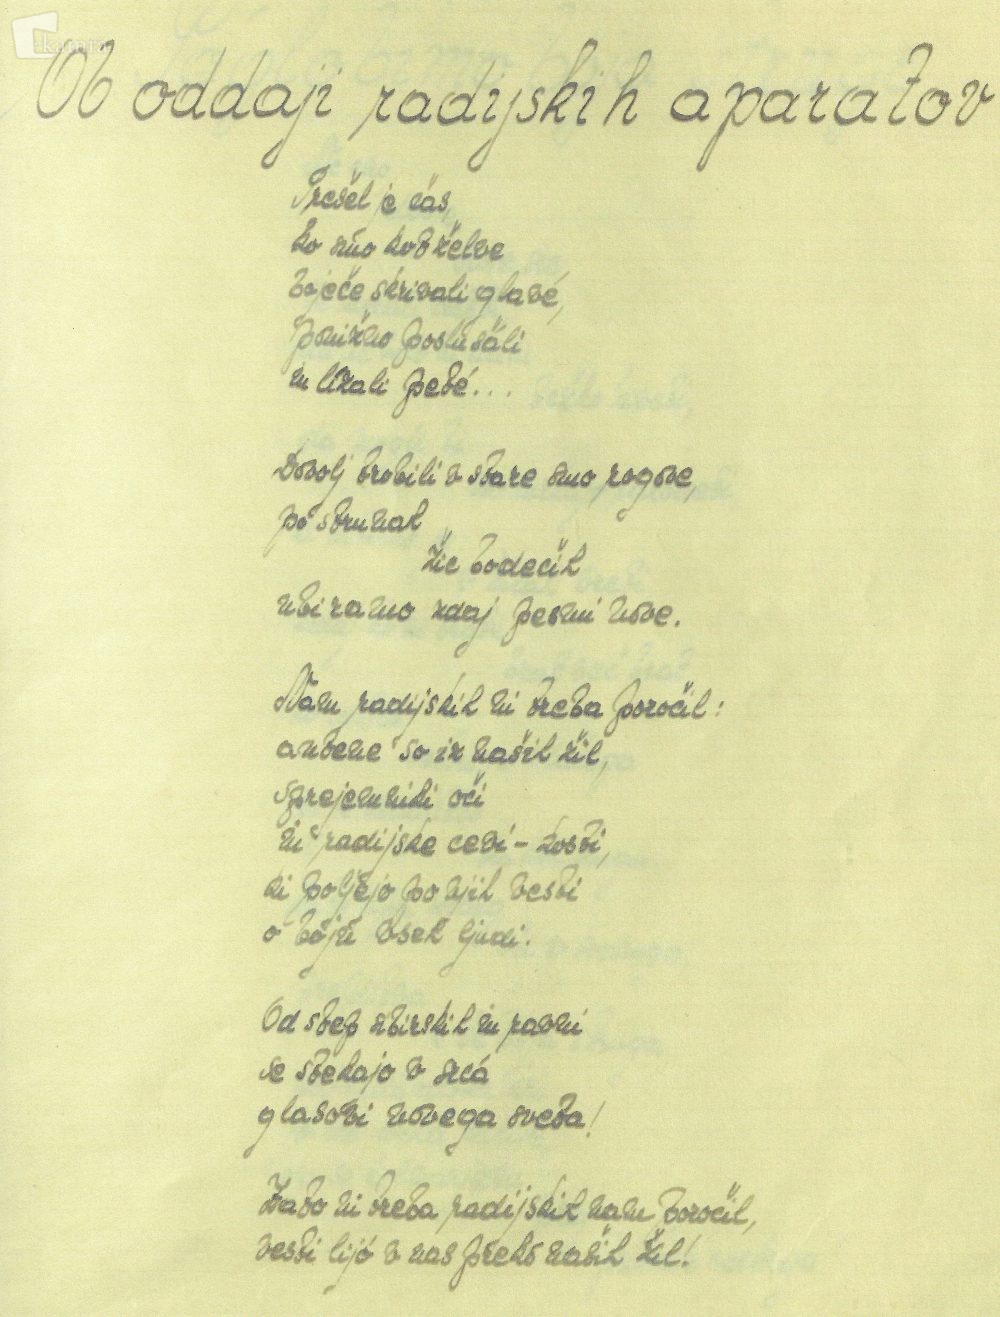 kamra
Ob oddaji radijskih aparatov
Prešel je čas,
ko smo kot želve
boječe skrivali glavé,
ponižno poslušáli
in lizali peté...
Dovolj trobili v stare smo rogove,
po strunah
žic bodečih
ubiramo zdaj pesmi nove.
Nam radijskih ni treba poročil:
antene so iz naših žil,
sprejemniki oči
in radijske cevi - kosti,
ki poljejo po njih vesti
o boju vseh ljudi.
Od step sibirskih in ravni
se stekajo v srcá
glasovi novega sveta!
Zato ni treba radijskih nam poročil,
vesti lijó v nas preko naših žil!